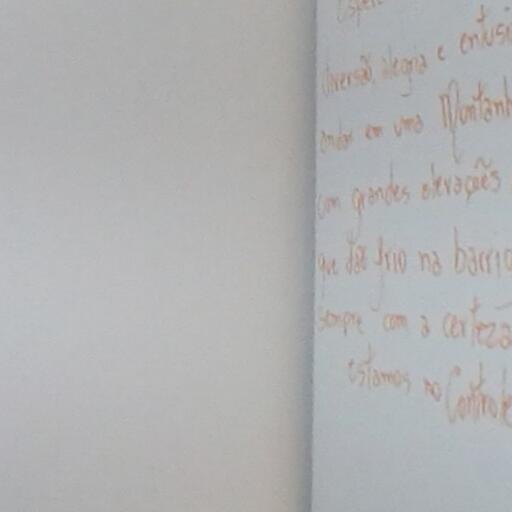 diversão, alegria e entusi
andar em uma Montanh
com grandes elevações
que dão frio na barrig
sempre com a certeza
estamos no Controle